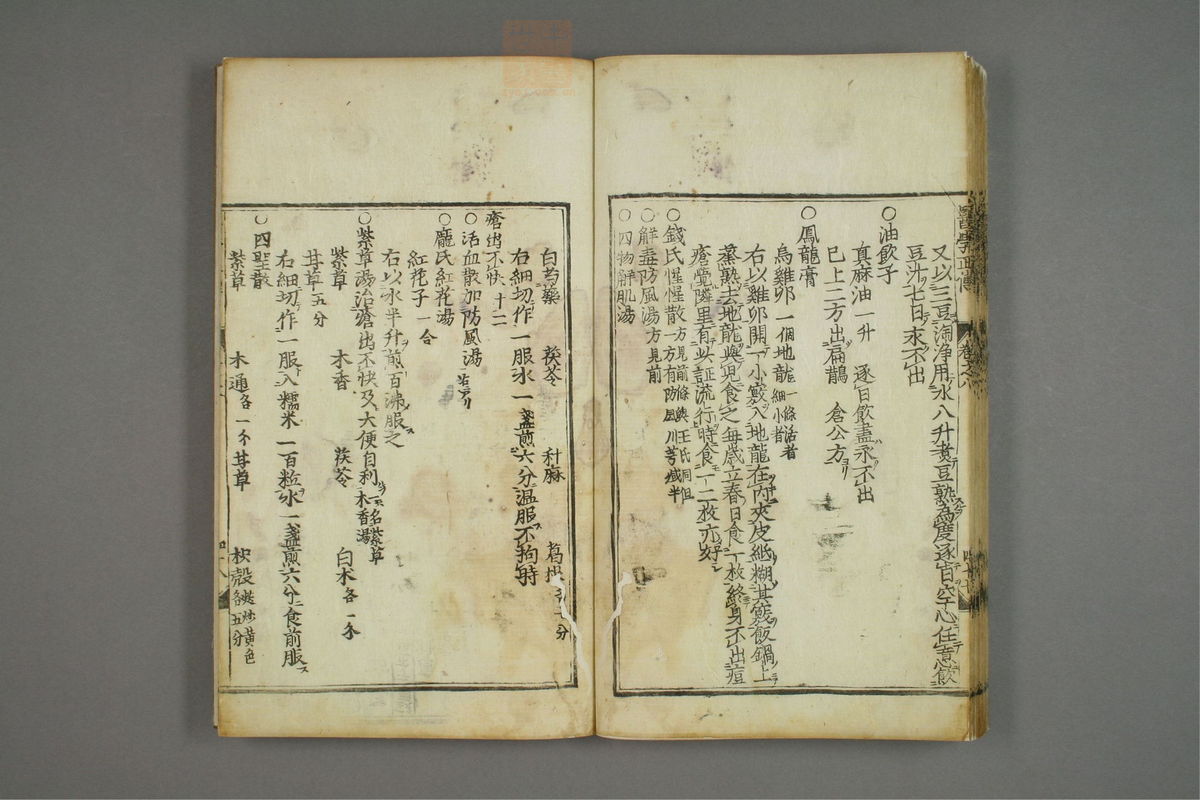 又以三豆淘淨用水八升煮豆熟為度逐日空心任意飲
豆汁七日永不出
○油飲子
真麻油一升　逐日飲盡永不出
已上二方出扁鵲　倉公方
○鳳龍膏
烏雞卵一個地龍細小者一條活者
右以雞卵開一小竅入地龍在內夾皮紙糊其竅飯鍋上
蒸熟去地龍與兒食之每歲立春日食一枚終身不出痘
瘡覺隣里有此証流行時食一二枚亦好
○錢氏惺惺散方見前條與王氏同但一方有防風川芎減半
○解毒防風湯方見前
○四物解肌湯
白芍藥　茯苓　升麻　葛根各一分
右細切作一服水一盞煎六分温服不拘時
瘡出不快十二
○活血散加防風湯
○龐氏紅花湯
紅花子一合
右以水半升煎百沸服之
○紫草湯治瘡出不快及大便自利一名紫草木香湯
紫草　木香　茯苓　白朮各一分
甘草五分
右細切作一服入糯米一百粒水一盞煎六分食前服
○四聖散
紫草　木通各一分甘草　枳殼麩炒黃色各五分